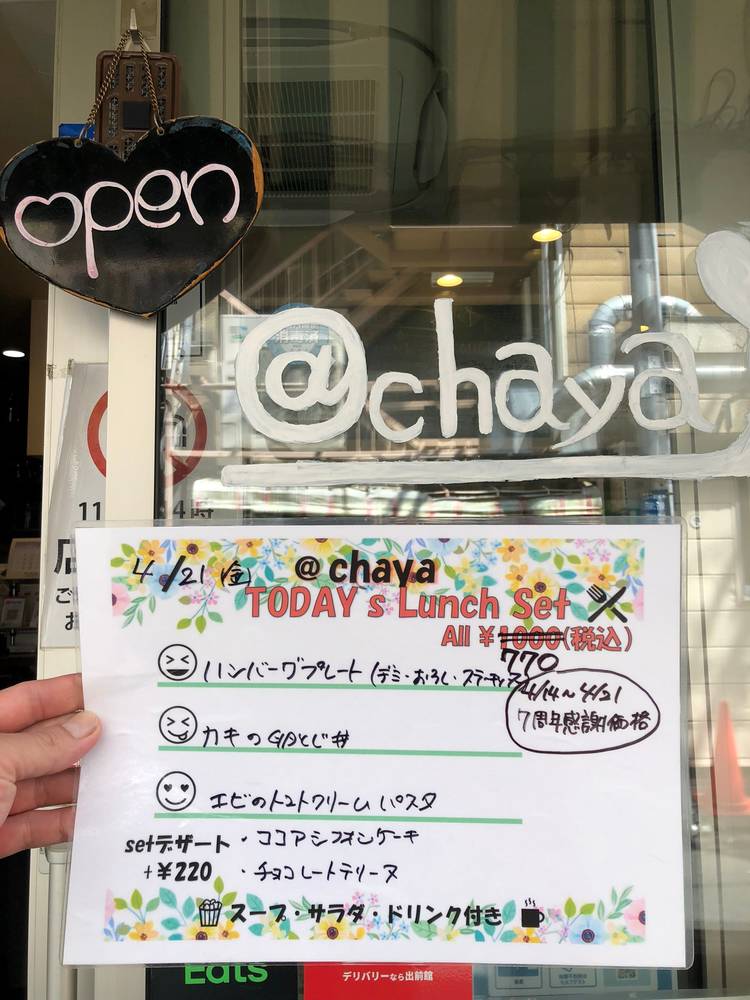 open
@chaya
4/21(金)
@chaya
TODAY s Lunch Set
All ¥1000(税込)
770
ハンバーグプレート(デミ・おろし・ステーキソース
4/14〜4/21
7周年感謝価格
カキの卵とじ丼
エビのトマトクリームパスタ
setデザート
・ココアシフォンケーキ
+¥220
・チョコレートテリーヌ
スープ・サラダ・ドリンク付き
Eats
デリバリーなら出前館